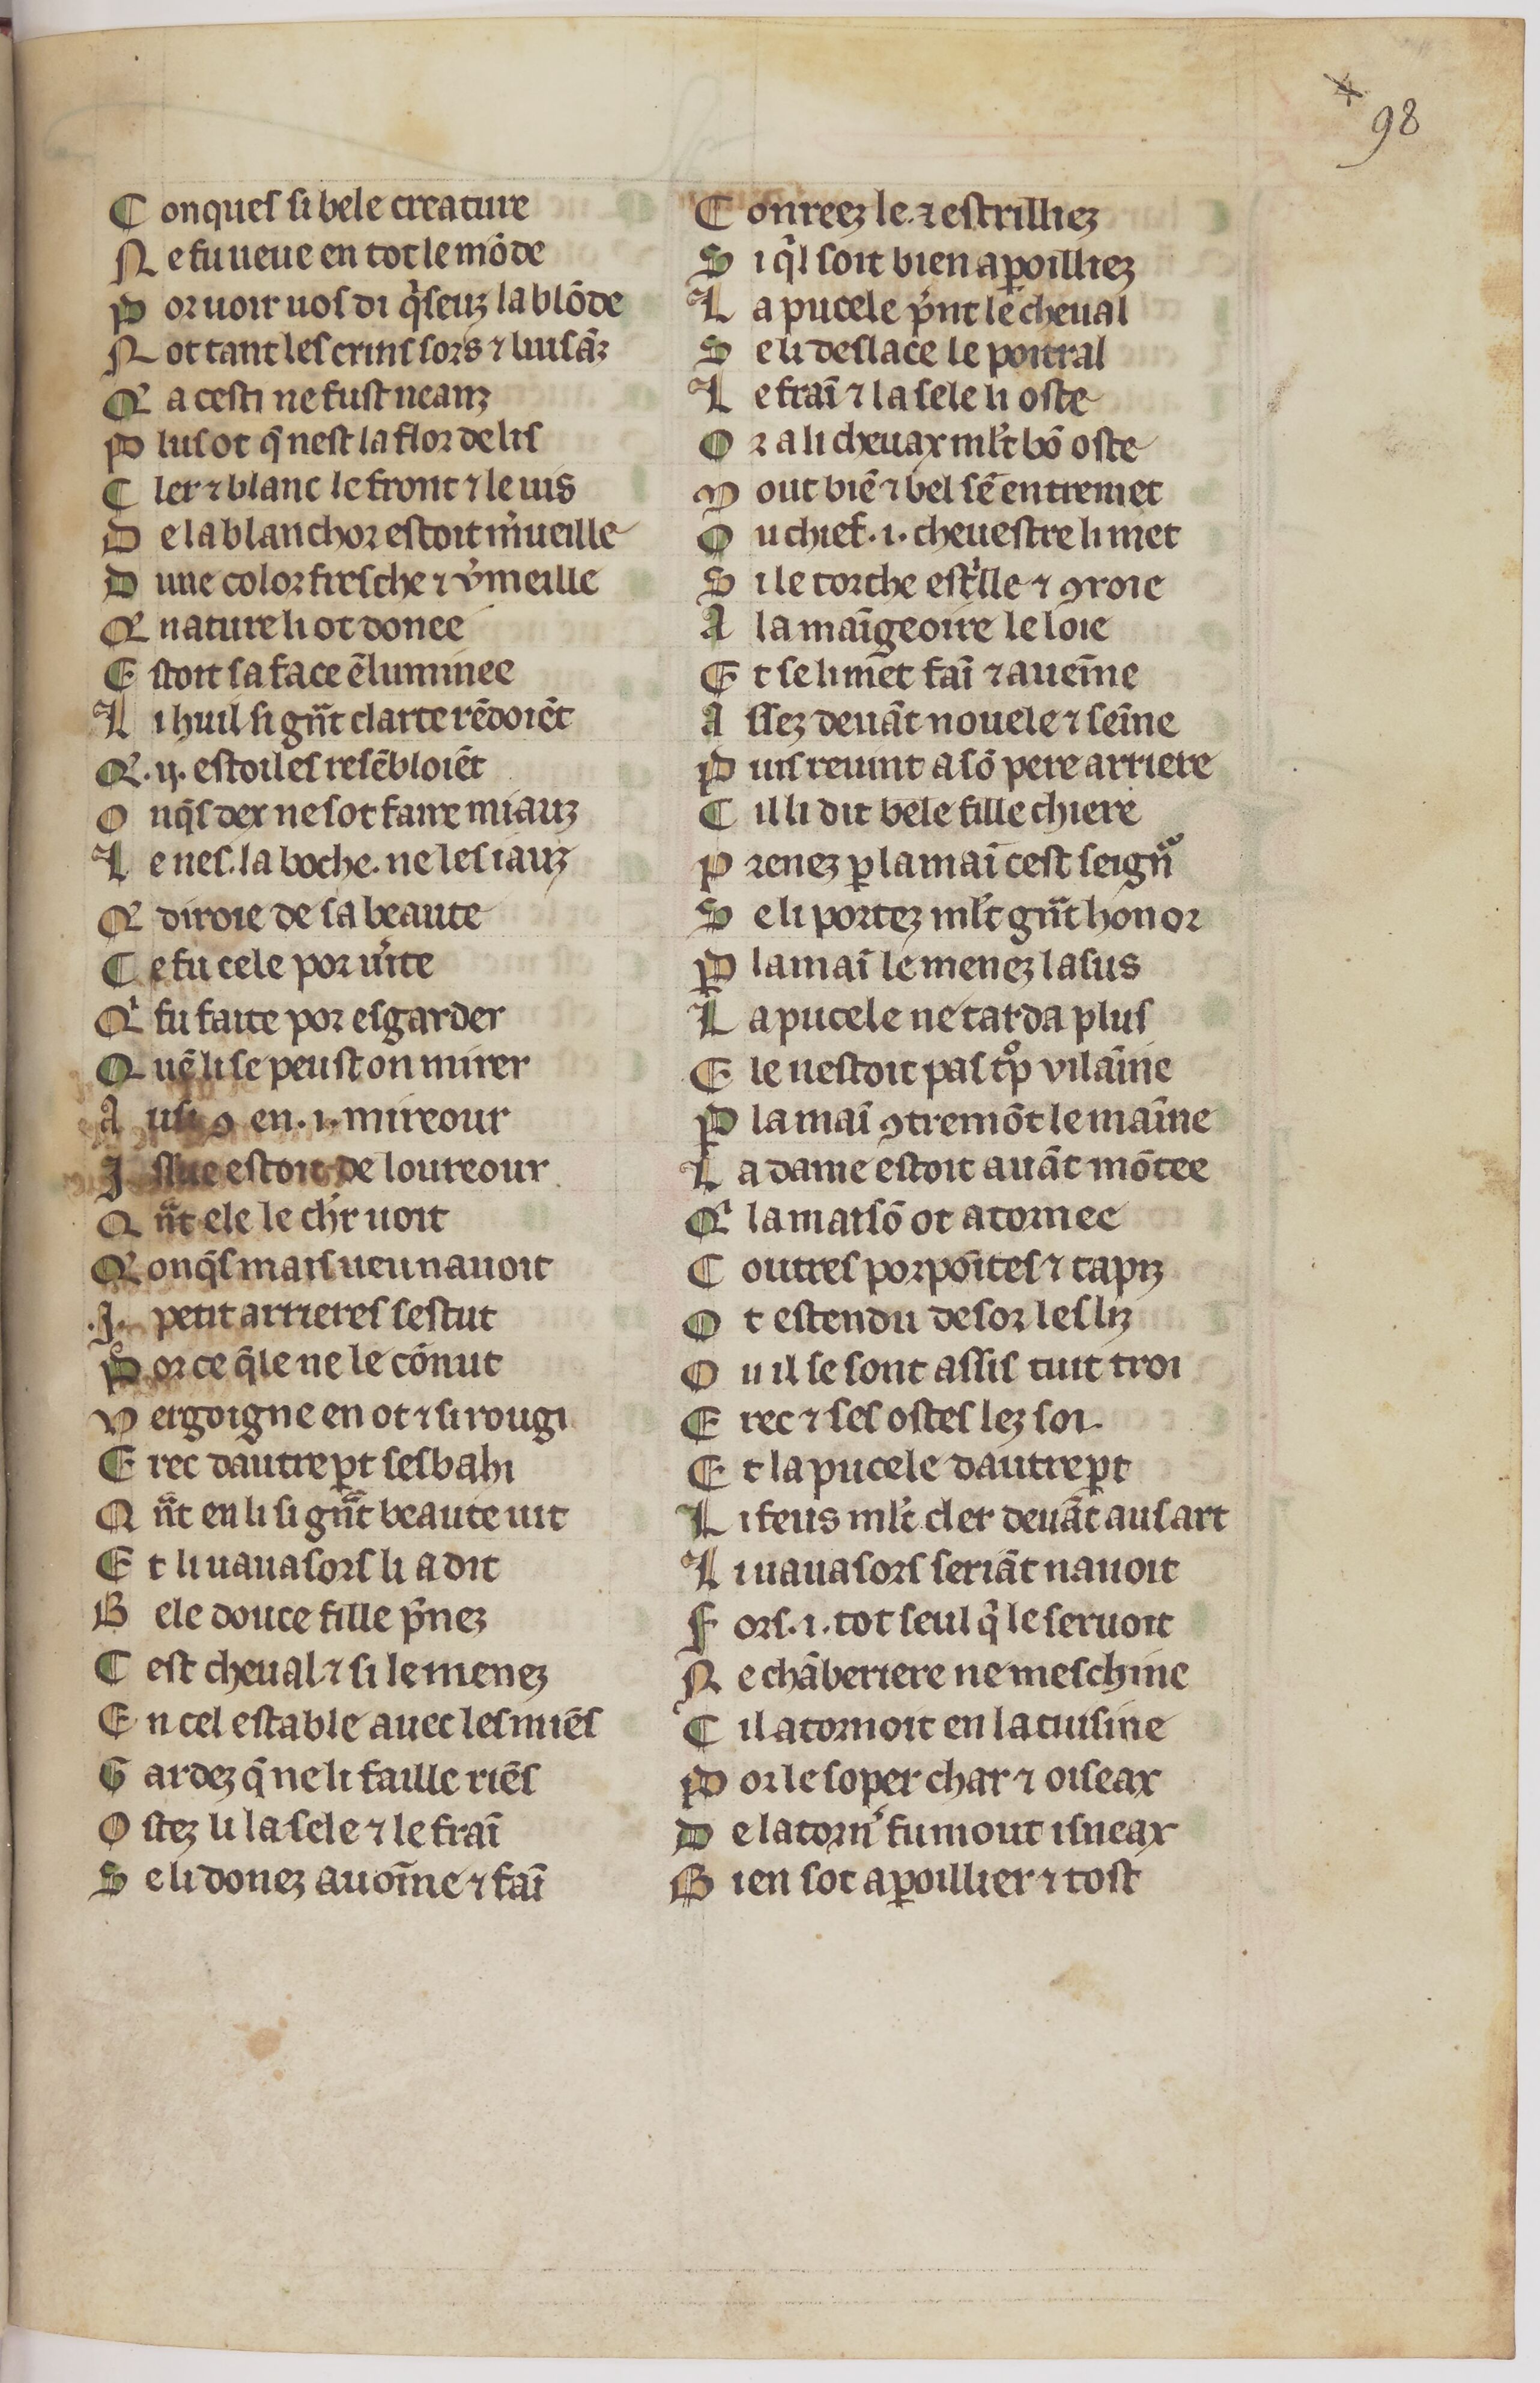 98
C onques si bele creature
N e fu ueue en tot le mõde
P or uoir uos di q̃ iseuz la blõde
N ot tant les crins sors ⁊ luisãz
Q̃ a cesti ne fust neanz
P lus ot q̃ nest la flor de lis
C ler ⁊ blanc le front ⁊ le uis
D e la blanchor estoit m̾ueille
D une color fresche ⁊ v̾meille
Q̃ nature li ot donee
E stoit sa face ẽluminee
L i huil si gñt clarte rẽdoiẽt
Q̃ .ij. estoiles resẽbloiẽt
O nq̃s dex ne sot faire miauz
L e nes. la boche. ne les iauz
Q̃ diroie de sa beaute
C e fu cele por ũite
Qⁱ fu faite por esgarder
Q uẽ li se peust on mirer
A usi ꝯ en .i. mireour
I ssue estoit de loureour
Q ñt ele le chr̃ uoit
Q̃ onq̃s mais ueu nauoit
.I. petit arrieres sestut
P or ce q̃le ne le cõnut
V ergoigne en ot ⁊ si rougi
E rec dautre ꝑt sesbahi
Q ñt en li si gñt beaute uit
E t li uauasors li a dit
B ele douce fille p̃nez
C est cheual ⁊ si le menez
E n cel estable auec les miẽs
G ardez q̃ ne li faille riẽs
O stez li la sele ⁊ le fraĩ
S e li donez auoĩne ⁊ faĩ
C onreez le. ⁊ estrilliez
S i qⁱl soit bien aꝑoilliez
L a pucele p̃nt le cheual
S e li deslace le poitral
L e fraĩ ⁊ la sele li oste
O r a li cheuax ml̃t bõ oste
M out biẽ ⁊ bel sẽ entremet
O u chief .i. cheuestre li met
S i le torche est̾lle ⁊ ꝯroie
A la maĩgeoire le loie
E t se li met faĩ ⁊ aueĩne
A ssez deuãt nouele ⁊ seĩne
P uis reuint a sõ pere arriere
C il li dit bele fille chiere
P renez ꝑ la maĩ cest seigñ
S e li portez ml̃t gñt honor
Ꝑ la maĩ le menez lasus
L a pucele ne tarda plus
E le nestoit pas tᵒp vilaĩne
Ꝑ la maĩ ꝯtremõt le maĩne
L a dame estoit auãt mõtee
Qⁱ la maisõ ot atornee
C outres porpoĩtes ⁊ tapiz
O t estendu desor les liz
O u il se sont assis tuit troi
E rec ⁊ ses ostes lez soi
E t la pucele dautre ꝑt
L i feus ml̃t cler deuãt aus art
L i uauasors seriãt nauoit
F ors .i. tot seul qⁱ le seruoit
N e chãberiere ne meschine
C il atornoit en la cuisine
P or le soper char ⁊ oiseax
D e latorn̾ fu mout isneax
B ien sot aꝑoillier ⁊ tost